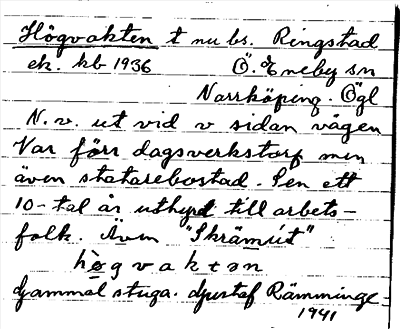 Högvakten t nu bs. Ringstad
ek. kb 1936 Ö. Eneby sn
Norrköping. Ögl
N. v. ut vid v sidan vägen
Var förr dagsverkstorp men
även statarebostad. Sen ett
10-tal år uthyrd till arbets-
folk. Även "Skrämut"
hög vaktən
Gammal stuga. Gustaf Rämminge
1941